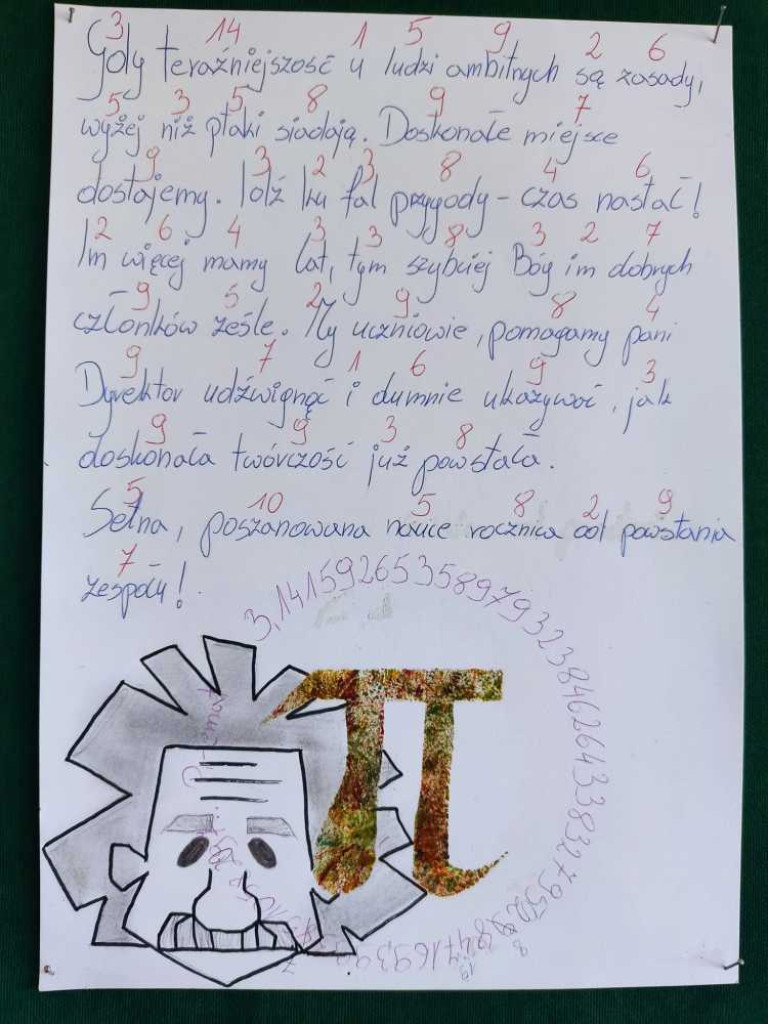 3 14 1 5 9 2 6
Gdy teraźniejszość u ludzi ambitnych są zasady,
5 3 5 8 9 7
wyżej niż ptaki siadają. Doskonałe miejsce
9 3 2 3 8 4 6
dostajemy. Idź ku fal przygody – czas nastał!
2 6 4 3 3 8 3 2 7
Im więcej mamy lat, tym szybciej Bóg im dobrych
9 5 2 9 8 4
członków ześle. My uczniowie, pomagamy pani
9 7 1 6 9 3
Dyrektor udźwignąć i dumnie ukazywać, jak
9 9 3 8
doskonała twórczość już powstała.
5 10 5 8 2 9
Setna, poszanowana nauce rocznica od powstania
7
zespołu!
3,14159265358979323846264338327950288471693 9
π